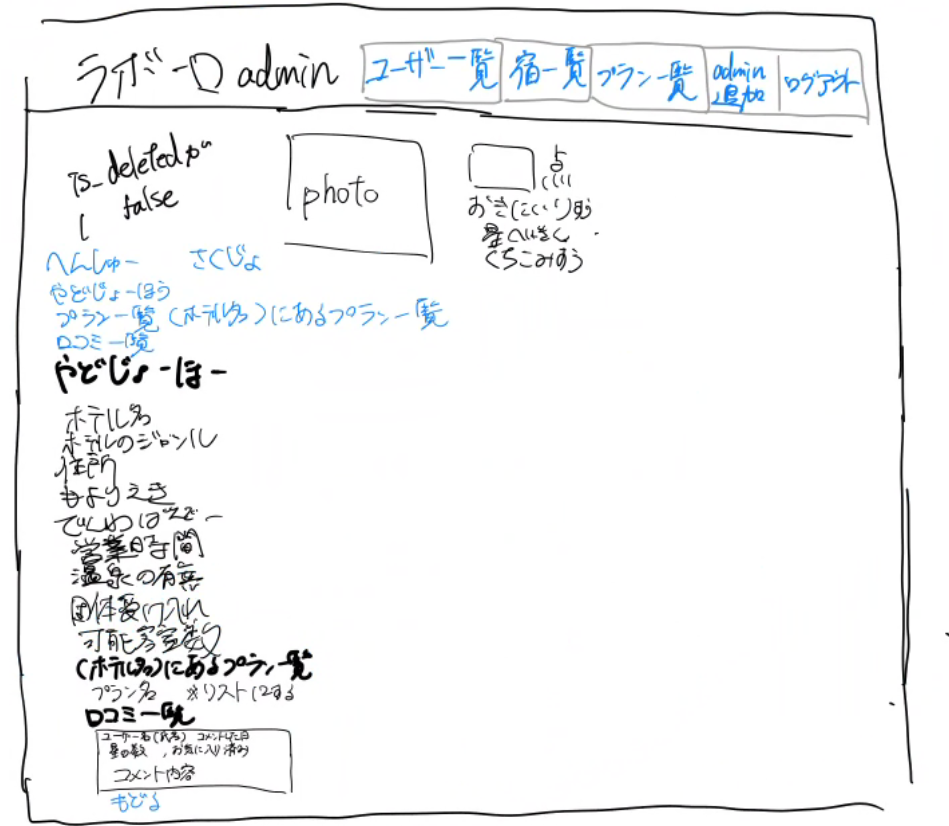 ライボーロ admin ユーザー一覧 宿一覧 プラン一覧 admin追加 ログアウト
is_deletedが
false
photo
おきにいり数
星へいきん
くちこみすう
へんしゅー さくじょ
やどじょーほう
プラン一覧 (ホテル名)にあるプラン一覧
口コミ一覧
やどじょーほー
ホテル名
ホテルのジャンル
住所
もよりえき
でんわばんごー
営業時間
温泉の有無
団体受け入れ
可能客室数
(ホテル名)にあるプラン一覧
プラン名 ※リストにする
口コミ一覧
ユーザー名(氏名) コメントした日
星の数 , お気に入り済み
コメント内容
もどる